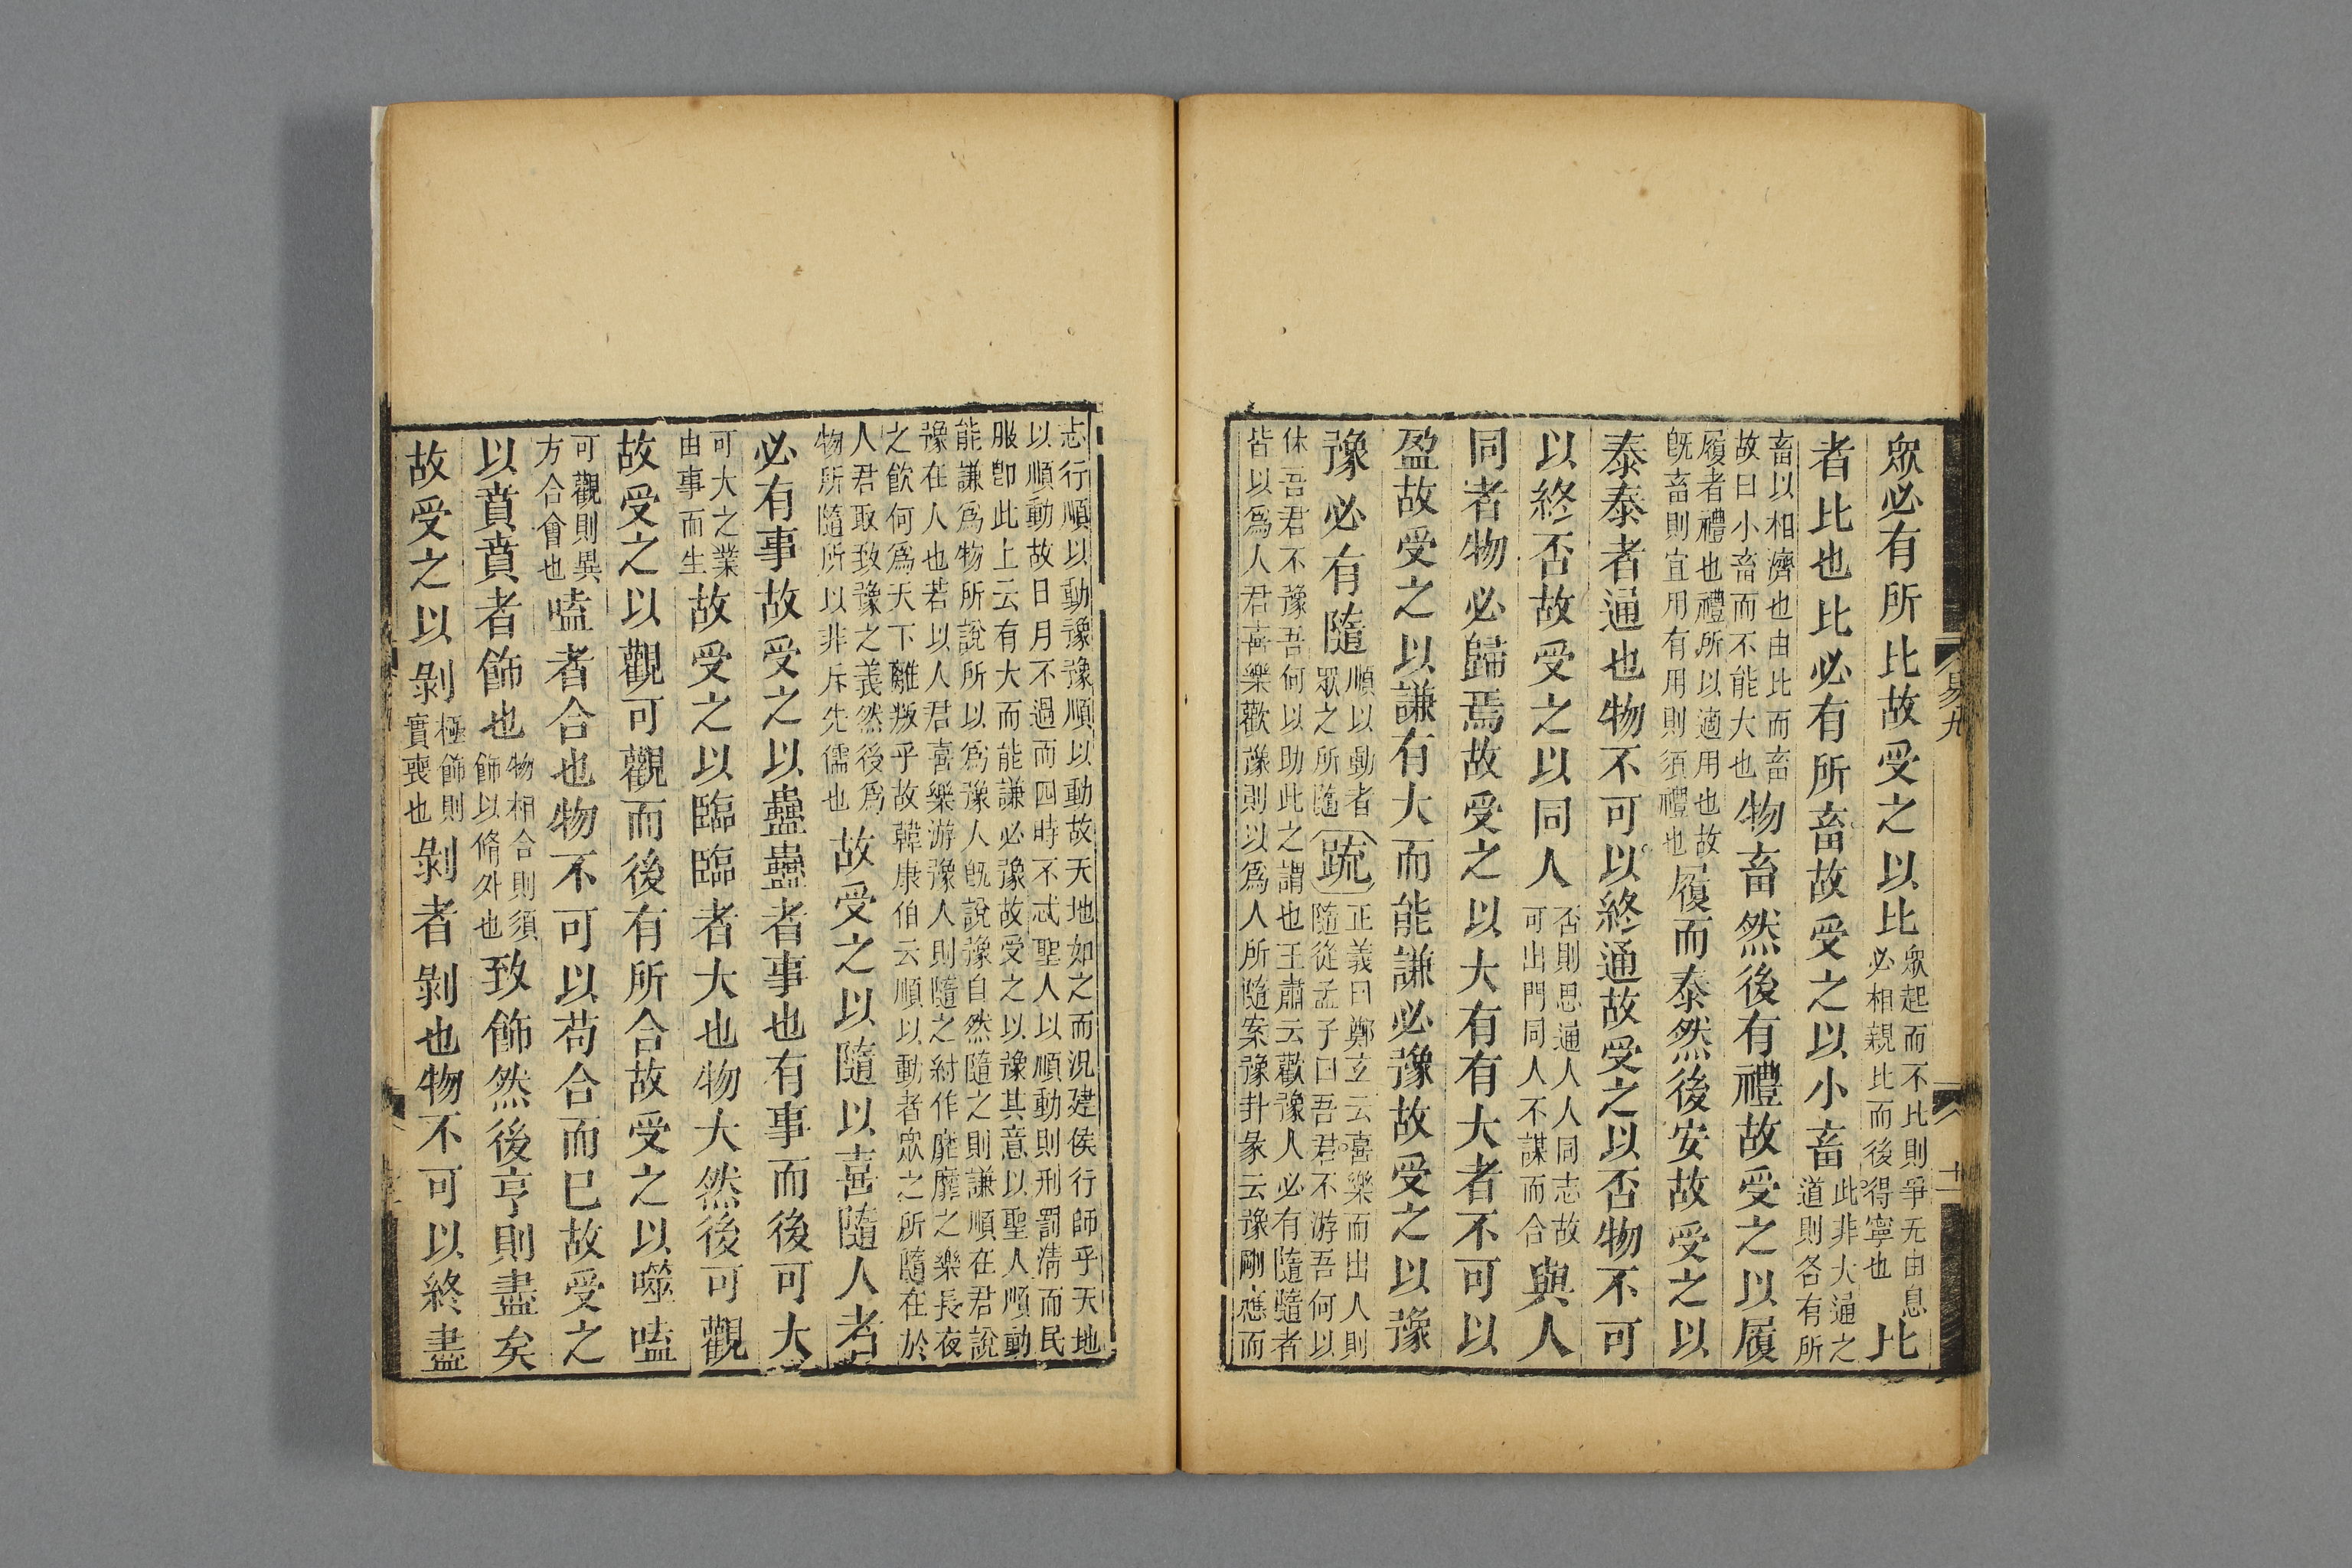 易九
十一
眾必有所比故受之以比眾起而不比則爭无由息必相親比而後得寧也比
者比也比必有所畜故受之以小畜此非大通之道則各有所
畜以相濟也由比而畜故曰小畜而不能大也物畜然後有禮故受之以履
履者禮也禮所以適用也故旣畜則宜用有用則須禮也履而泰然後安故受之以
泰泰者通也物不可以終通故受之以否物不可
以終否故受之以同人否則思通人人同志故可出門同人不謀而合與人
同者物必歸焉故受之以大有有大者不可以
盈故受之以謙有大而能謙必豫故受之以豫
豫必有隨順以動者眾之所隨疏正義曰鄭玄云喜樂而出人則隨從孟子曰吾君不游吾何以
休吾君不豫吾何以助此之謂也王肅云歡豫人必有隨隨者
皆以爲人君喜樂歡豫則以爲人所隨案豫卦彖云豫剛應而
志行順以動豫豫順以動故天地如之而況建侯行師乎天地
以順動故日月不過而四時不忒聖人以順動則刑罰清而民
服卽此上云有大而能謙必豫故受之以豫其意以聖人順動
能謙爲物所說所以爲豫人旣說豫自然隨之則謙順在君說
豫在人也若以人君喜樂游豫人則隨之紂作靡靡之樂長夜
之飮何爲天下離叛乎故韓康伯云順以動者眾之所隨在於
人君取致豫之義然後爲物所隨所以非斥先儒也故受之以隨以喜隨人者
必有事故受之以蠱蠱者事也有事而後可大
可大之業由事而生故受之以臨臨者大也物大然後可觀
故受之以觀可觀而後有所合故受之以噬嗑
可觀則異方合會也嗑者合也物不可以苟合而已故受之
以賁賁者飾也物相合則須飾以脩外也致飾然後亨則盡矣
故受之以剝極飾則實喪也剝者剝也物不可以終盡